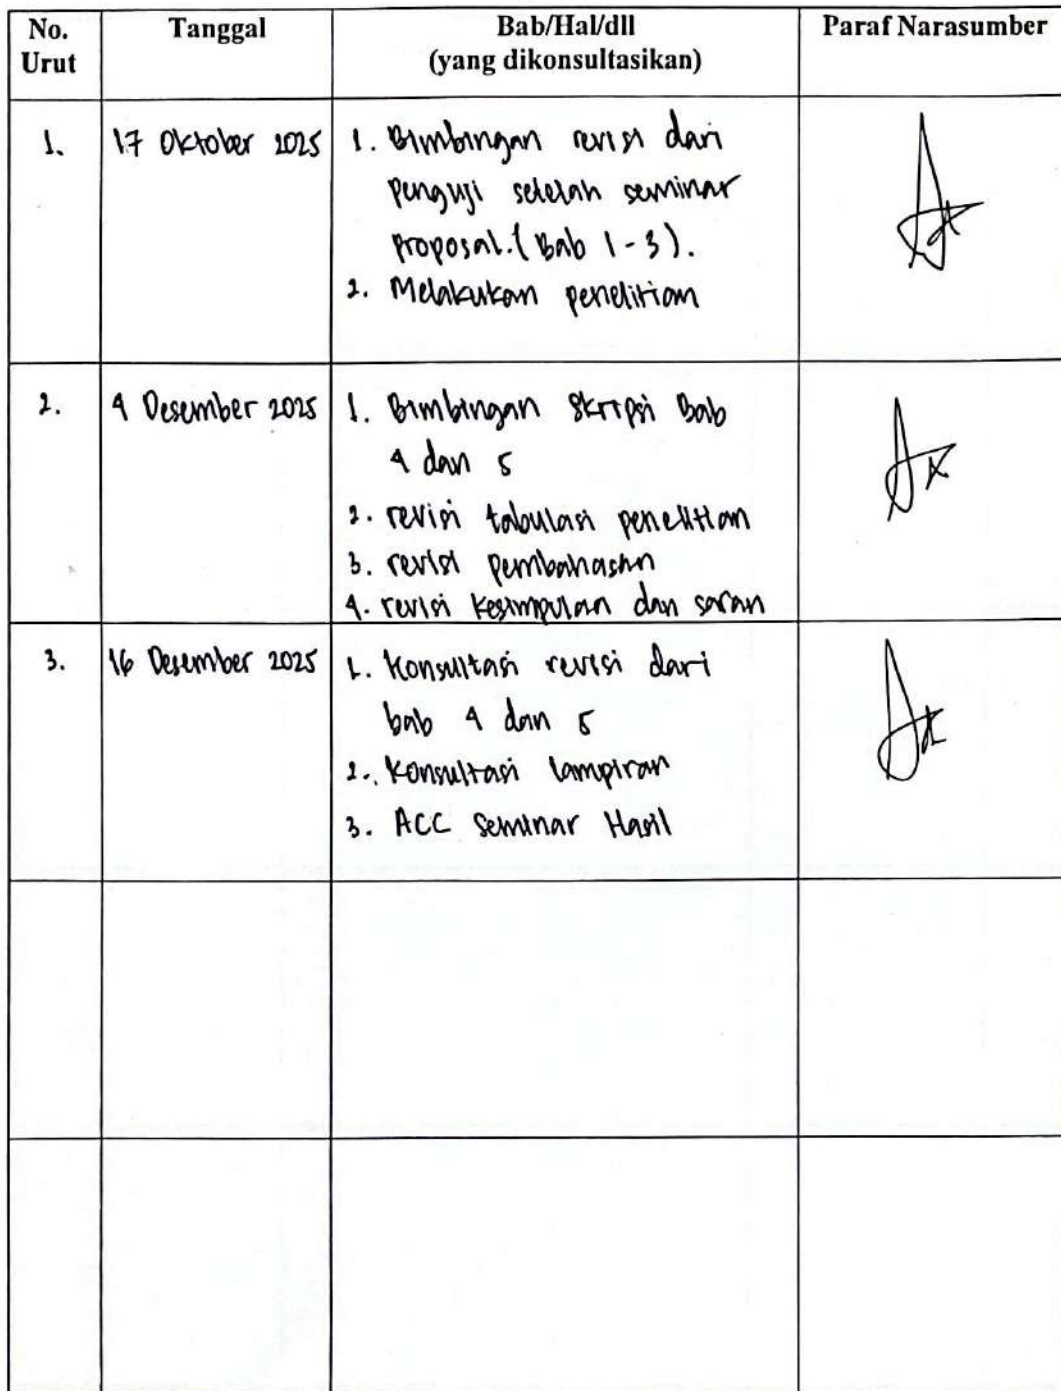 No. Urut
Tanggal
Bab/Hal/dll
(yang dikonsultasikan)
Paraf Narasumber
1.
17 Oktober 2025
1. Bimbingan revisi dari
penguji setelah seminar
proposal. (Bab 1-3).
2. Melakukan penelitian
2.
4 Desember 2025
1. Bimbingan Skripsi Bab
4 dan 5
2. revisi tabulasi penelitian
3. revisi pembahasan
4. revisi kesimpulan dan saran
3.
16 Desember 2025
1. Konsultasi revisi dari
bab 4 dan 5
2. Konsultasi lampiran
3. ACC Seminar Hasil